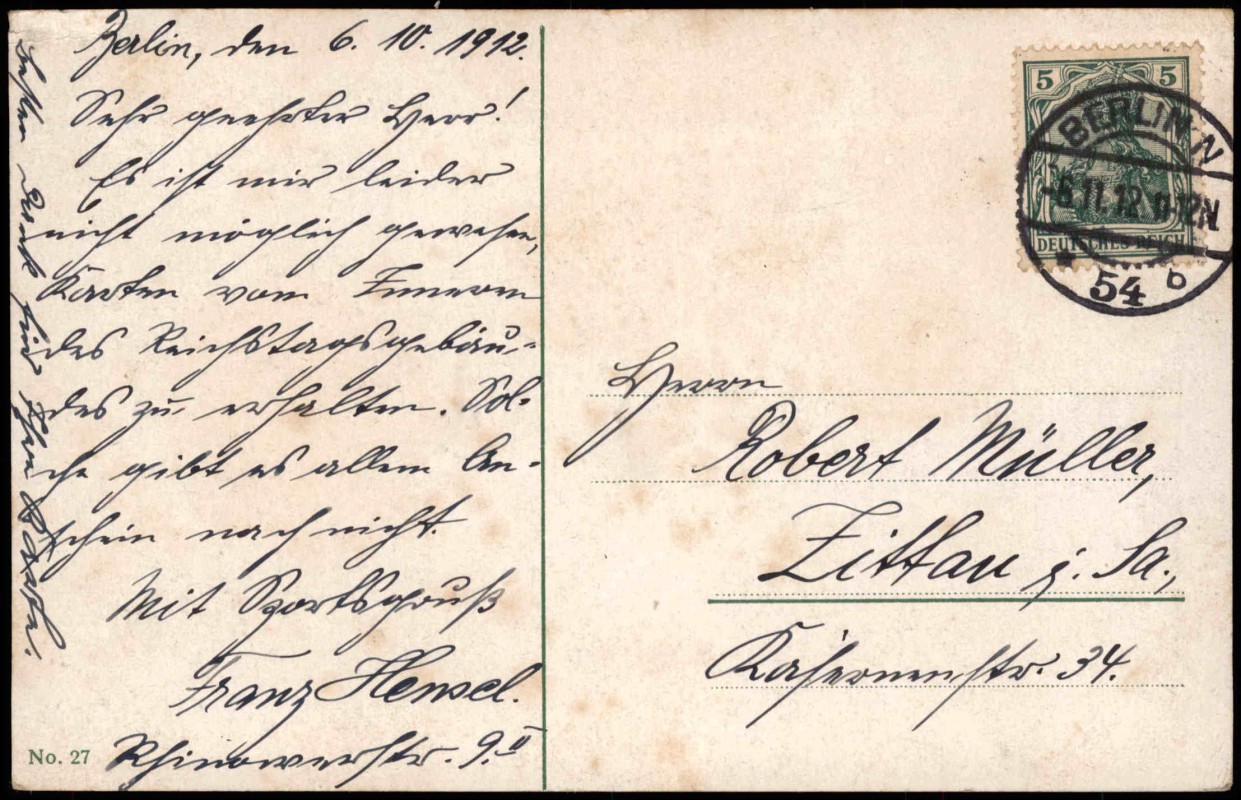 Berlin, den 6. 10. 1912.
Sehr geehrter Herr!
Es ist mir leider
nicht möglich gewesen,
Karten vom Inneren
des Reichstagsgebäu-
des zu erhalten. Sol-
che gibt es allem An-
schein nach nicht.
Mit Sportsgruß
Franz Hensel.
Rhinowerstr. 9.II
Besten Dank für Ihre Karte.
No. 27
5 5
DEUTSCHES REICH
BERLIN N
-6.11.12.11-12N
* 54 b
Herrn
Robert Müller,
Zittau i. Sa.,
Kasernenstr. 34.